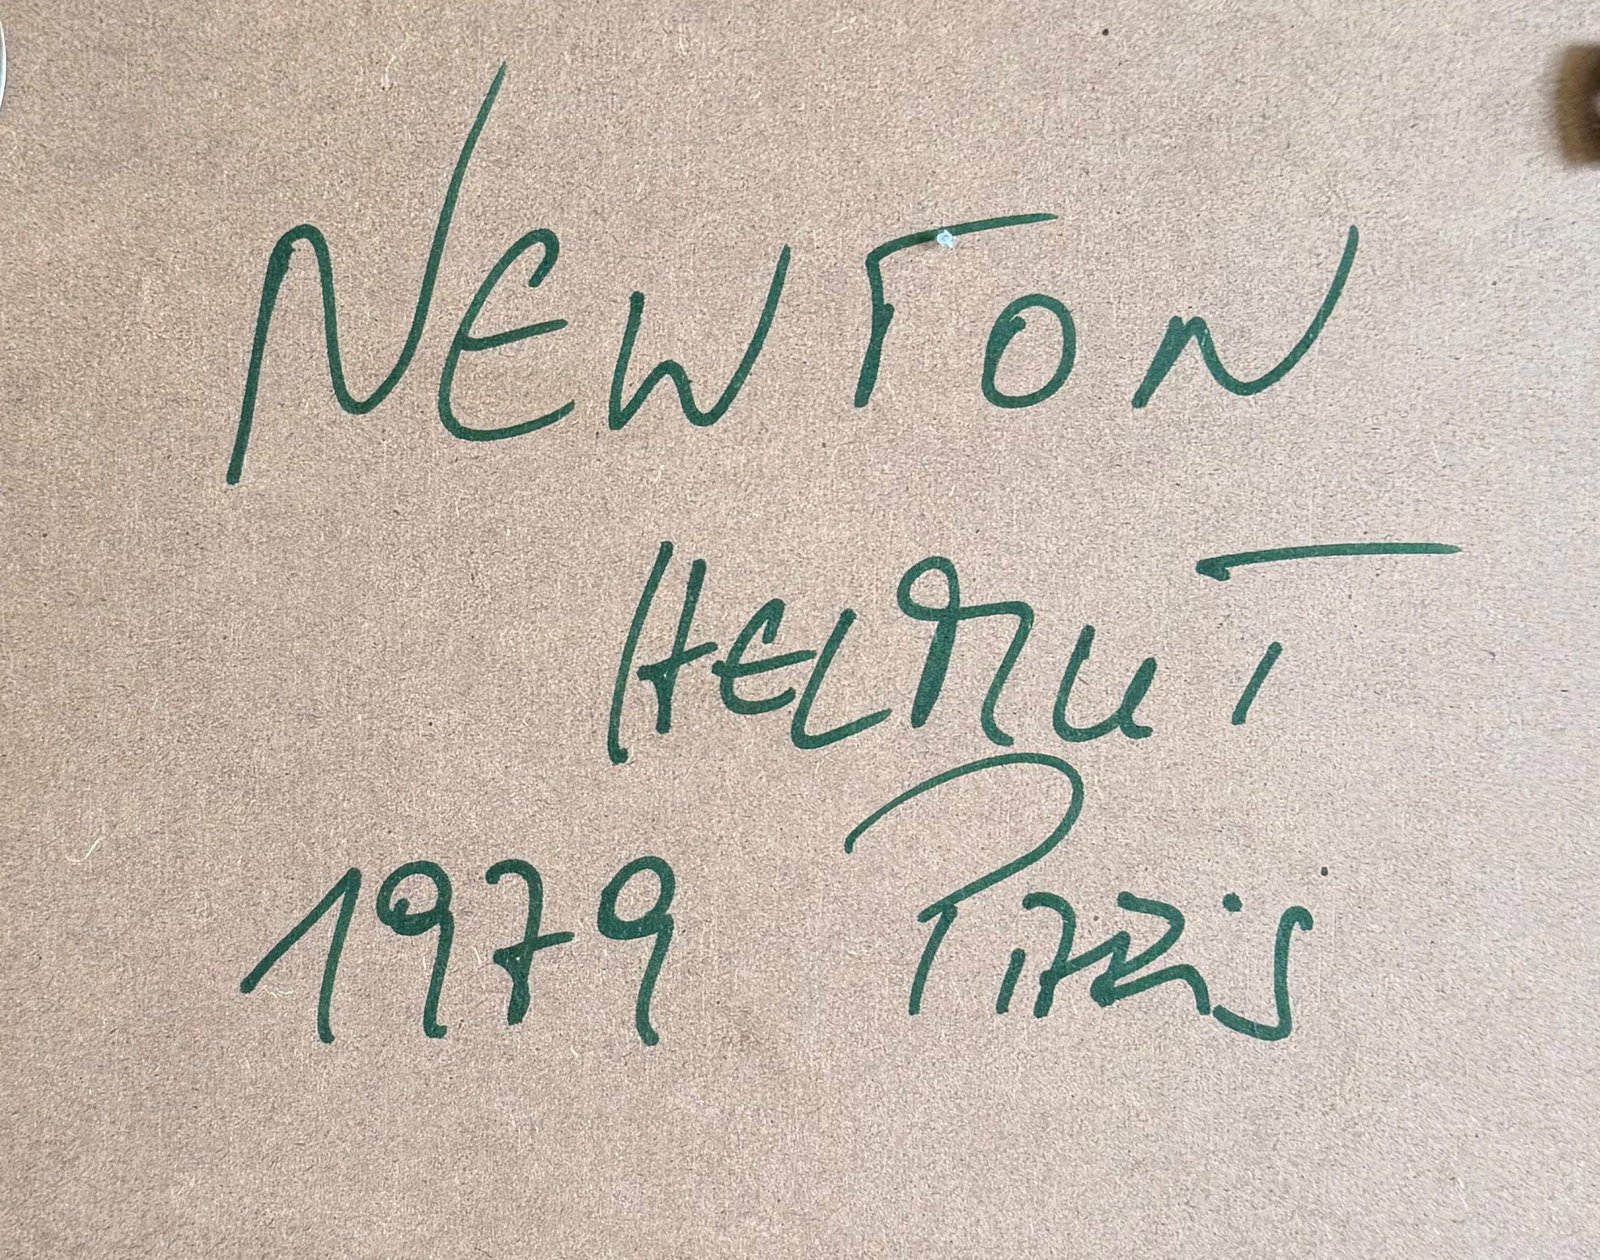 NEWTON
HELMUT
1979 PARiS